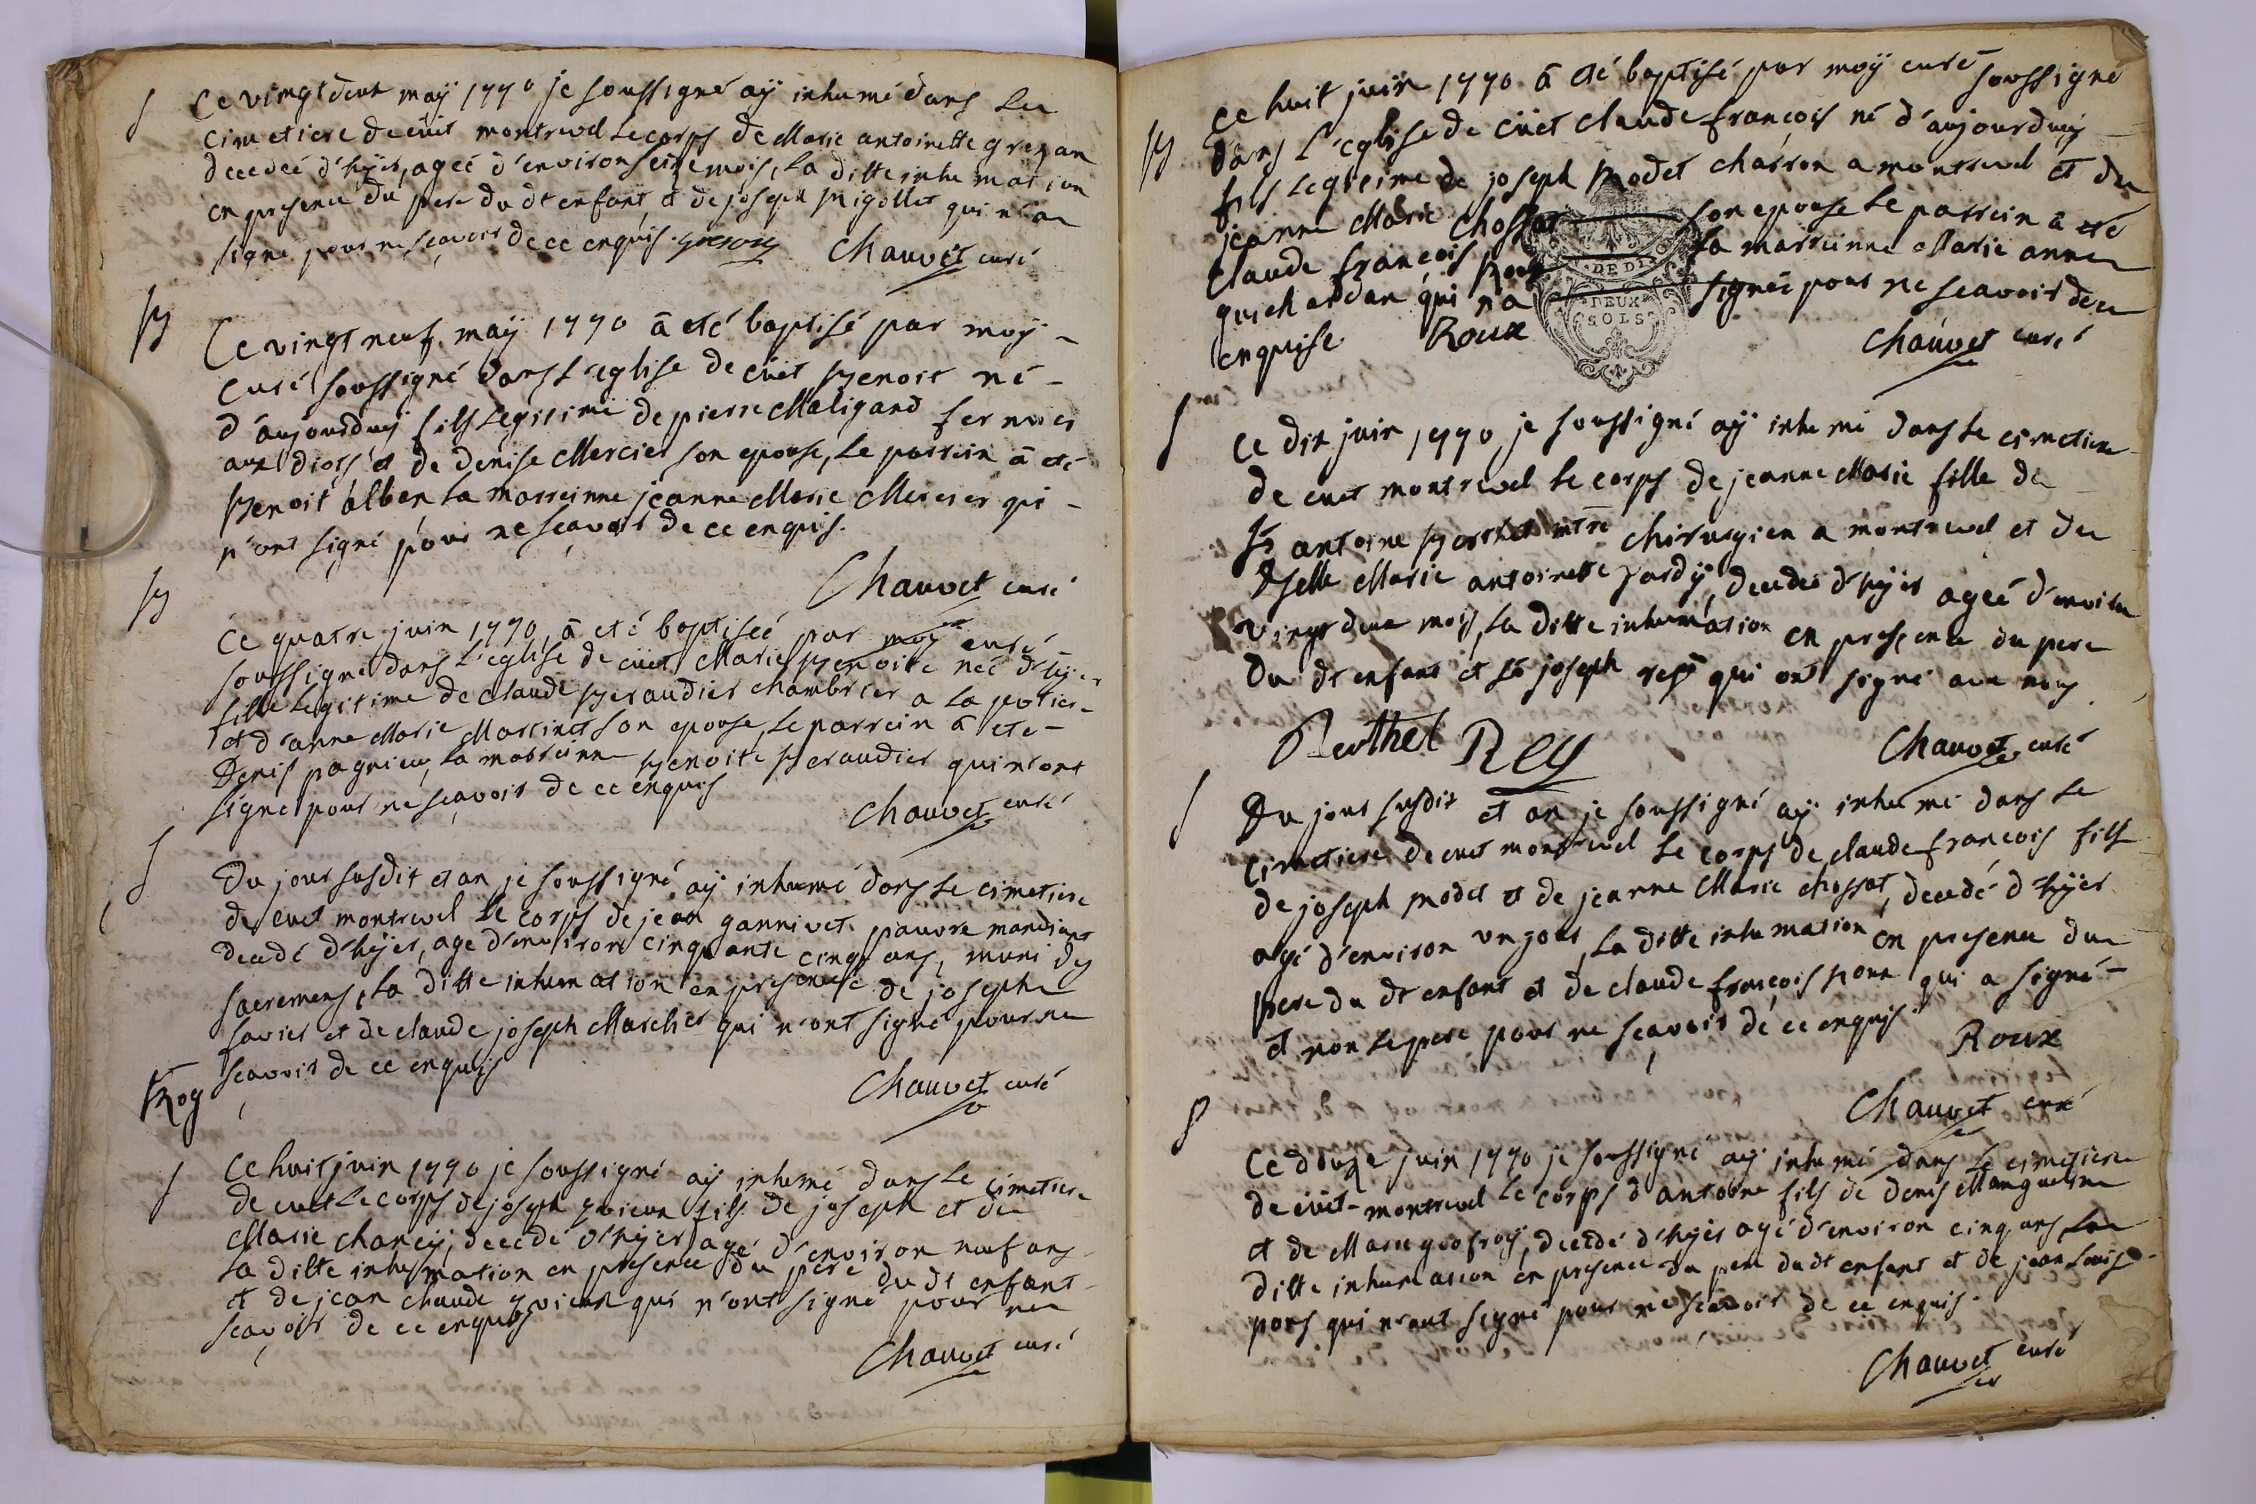 S
Ce vingt deux maÿ 1770 je soussigné aÿ inhumé dans le
cimetiere de cüet montrevel le corps de Marie antoinette grezan
decedeé d'hÿer, ageé d'environ seize mois, la ditte inhumation
en presence du pere du dt enfant, et de joseph migollet qui n'a
signé pour ne sçavoir de ce enquis. Chauvet curé
B
Ce vingt neuf maÿ 1770 â eté baptisé par moÿ
curé soussigné dans l'eglise de cüet Benoit né
d'aujourduÿ fils legitime de pierre Maligand fermier
aux diots et de denise Mercier son epouse, le parrein â eté
Benoit alban la marreinne jeanne Marie Mercier qui
n'ont signé pour ne sçavoir de ce enquis.
Chauvet curé
B
Ce quatre juin 1770, â eté baptiseé par moÿ curé
soussigné dans l'eglise de cüet Marie Benoite neé d'hÿer
fille legitime de claude Beraudier chambrier a la potiere
et d'anne Marie Martinet son epouse, le parrein â eté
Denis pagnieu, la marreinne Benoite Beraudier qui n'ont
signé pour ne sçavoir de ce enquis
Chauvet curé
S
Du jour susdit et an je soussigné aÿ inhumé dans le cimetiere
de cuet montrevel le corps de jean gannivet pauvre mandiant
decedé d'hÿer, agé d'environ cinquante cinq ans, muni des
sacremens, la ditte inhumation en presence de joseph
favier et de claude joseph Marchier qui n'ont signé pour ne
sçavoir de ce enquis
Chauvet curé
S
Ce huit juin 1770 je soussigné aÿ inhumé dans le cimetiere
de cuet le corps de joseph fils de joseph et de
Marie chaneÿ, decedé d'hÿer agé d'environ neuf ans
la ditte inhumation en presence du pere du dt enfant
et de jean claude qui n'ont signé pour ne
sçavoir de ce enquis
Chauvet curé
B
Ce huit juin 1770 â eté baptisé par moÿ curé soussigné
dans l'eglise de cüet claude françois né d'aujourduÿ
fils legitime de joseph modet charron a montrevel et de
jeanne Marie Chossat son epouse le parrein â eté
claude françois Roux la marreinne Marie anne
guichardan qui n'a signeé pour ne sçavoir de ce
enquise Roux Chauvet curé
DE DI
DEUX
SOLS
S
Ce dix juin 1770, je soussigné aÿ inhumé dans le cimetiere
de cuet montrevel le corps de jeanne Marie fille de
Sr antoine Berthet mtre chirurgien a montrevel et de
Dselle Marie antoinette jardÿ, decedeé d'hÿer ageé d'environ
vingt deux mois, la ditte inhumation en presence du pere
du dt enfant et Sr joseph reÿ qui ont signé avec nous
Berthet Rey Chauvet curé
S
Du jour susdit et an je soussigné aÿ inhumé dans le
cimetiere de cuet montrevel le corps de claude françois fils
de joseph modet et de jeanne Marie chossat, decedé d'hÿer
agé d'environ un jour, la ditte inhumation en presence du
pere du dt enfant et de claude françois roux qui a signé
et non le pere pour ne sçavoir de ce enquis. Roux
Chauvet curé
S
Ce douze juin 1770 je soussigné aÿ inhumé dans le cimetiere
de cüet-montrevel le corps d'antoine fils de denis Manguelin
et de Marie geofroÿ, decedé d'hÿer agé d'environ cinq ans la
ditte inhumation en presence du pere du dt enfant et de jean louis
pors qui n'ont signé pour ne sçavoir de ce enquis.
Chauvet curé